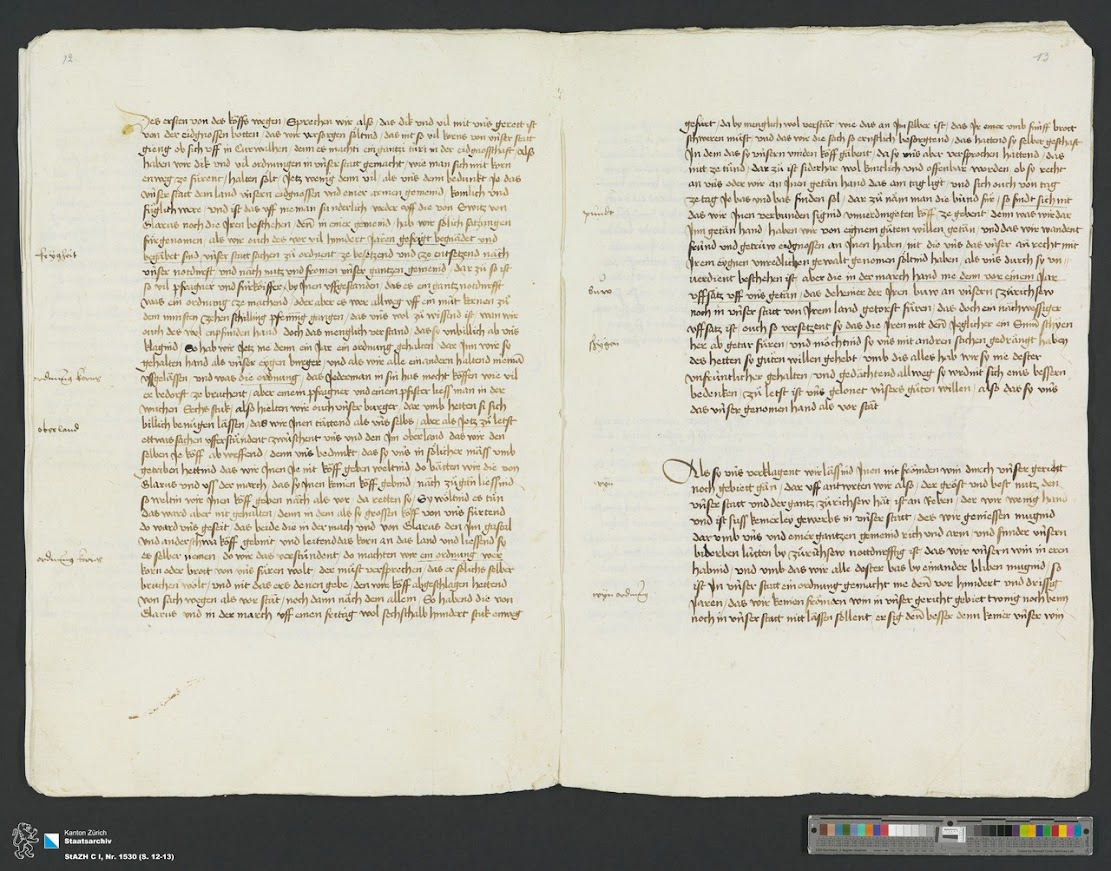 12
Des ersten von des köffs wegen / Sprechen wir also / das dik und vil mit uns gerett ist
von der eidgnossen botten / das wir versorgen söltind / das nit so vil korns von unser statt
gieng ob sich uff in Curwalhen / denn es machti ein gantzi türi in der eidgnosshaft / Also
haben wir dik und vil ordnungen in unser statt gemacht / wie man sich mit korn
enweg ze fürent / halten sölt / Jetz wenig denn vil / als uns denn bedunkt Je das
unser statt dem land unsern eidgnossen und einer armen gemeind / komlich und
füglich were / und ist das uff nieman sunderlich weder uff die von Switz von
Glarus noch die Iren beschehen / denn in einer gemeind / hab wir sölich satzungen
fürgenomen / als wir ouch des vor vil hundert Jaren gefrigt begnadet und
begabet sind / unser statt sachen zu ordnent ze besetzend und ze entsetzend nach
frygheit
unser notdurft und nach nutz und fromen unser gantzen gemeind / dar zu so ist
so vil pfragner und fürköiffer / by Inen uffgestanden / das es ein gantz notdurfft
was ein ordnung ze machend / oder aber es wer allweg uff ein mütt kernen zu
dem minsten zehen schilling pfenning gangen / das uns wol zu wissend ist / wan wir
ouch des wol enpfunden hand / doch das menglich verstand / das so unbillich ab uns
klagind / So hab wir Jetz me denn ein Jar ein ordnung gehalten / dar Inn wir so
gehalten hand als unser eygen burger / und als wir alle ein andern haltend nieman
ordnung korns
ussgelassen / und was die ordnung / das Jederman in sin hus mocht köffen wie vil
er bedorft ze bruchent / aber einem pfragner und einem pfister liess man in der
wuchen Sechs stuk / also hielten wir ouch unser burger / dar umb hetten si sich
oberland
billich benügen lassen / das wir Inen tattend als uns selbs / aber als Jetz zu letst
ettwas sachen ufferstundent zwüschent uns und den Im oberland das wir den
selben Je köff ab werffend / denn uns bedunkt / das so uns in sölicher mass umb
getriben hettind das wir Inen Je nit köff geben woltind do batten wir die von
Glarus und uss der march / das so Inen keinen köff gebind / nach zu gan liessind
so weltin wir Inen köff geben nach als vor / da retten so / So wöltind es tun
das ward aber nit gehalten / denn in dem als so grossen köff von uns fürtend
do ward uns geseit / das beide die in der mach und von Glarus den Im gastal
und anderschwa köff gebint / und leitend das korn an das land und liessend so
ordnung korns
es selber nemen / do wir das verstundent / do machten wir ein ordnung / wer
korn oder brott von uns füren wölt / der must versprechen / das er sölichs selber
bruchen wölt / und nit das ers denen gebe / den wir köff abgeschlagen hettend
von sach wegen als vor stat / noch dann nach dem allem / So habend die von
Glarus und in der march uff einen fritag wol sechsthalb hundert stuk enweg
13
gefürt / da by menglich wol verstat / wie das an Im selber ist / das Je einer umb fünff brott
schweren must / und das wir die sach so ernstlich besorgtend / das hattend so selber geschaft
In dem das so unsern vinden köff gabent / da so uns aber versprochen hattend / das
nit ze tund / dar zu ist siderhar wol kuntlich und offenbar worden / ob so recht
an uns oder wir an Inen getan hand das am tag ligt / und sich ouch von tag
ze tag Je bas und bas finden sol / dar zu näm man die bünd für / so findt sich nit
punkt
das wir Inen verbunden sigind unverdingeten köff ze gebent / denn was wir dar
Inn getan hand / haben wir von eignem gutem willen getan / und das wir wandent
fründ und getrüw eidgnossen an Inen haben / mit die uns das unser an recht mit
Irem eygnen unredlichen gewalt genomen söltind haben / als uns durch so un
verdient beschehen ist / aber die in der march hand me denn vor einem Jar
buw
uffsatz uff uns getan / das deheiner der Iren buw an unsern Zürichsew
noch in unser statt von Irem land getorst füren / das doch ein nachwesiger
uffsatz ist / ouch so versetzent so das die Iren mit denn Jeglicher ein
her ab getar füren / und möchtind so uns mit andren sachen gedrangt haben
des hetten so guten willen gehebt / umb dis alles hab wir so nie dester
unfrüntlicher gehalten / und gedachtend allweg so wrdint sich eins bessren
bedenken / zu letst ist uns gelonet unsers guten willen / also das so uns
das unser genomen hand als vor stat
Als so uns verklagent wir lassind Inen nit frömden win durch unser gericht
wyn
noch gebiett gan / dar uff antwrten wir also / der gröst und best nutz den
unser statt und der gantz zürichsew hat ist an Reben / der wir wenig hand
und ist suss kemerley gewerbs in unser statt / des wir geniessen mugind
dar umb uns und einer gantzen gemeind rich und arm / und sunder unsern
biderben lütten by zürichsew notdurfftig ist das wir unsern win in eren
habind / und umb das wir alle dester bas by einander bliben mugind / so
wyn ordnung
ist In unser statt ein ordnung gemacht me denn vor hundert und drissig
Jaren / das wir keinen frömden win in unser gericht gebiet twing noch benn
noch in unser statt nitt lassen söllent / er sig denn besser denn keiner unser win
Kanton Zürich
Staatsarchiv
StAZH C I, Nr. 1530 (S. 12-13)